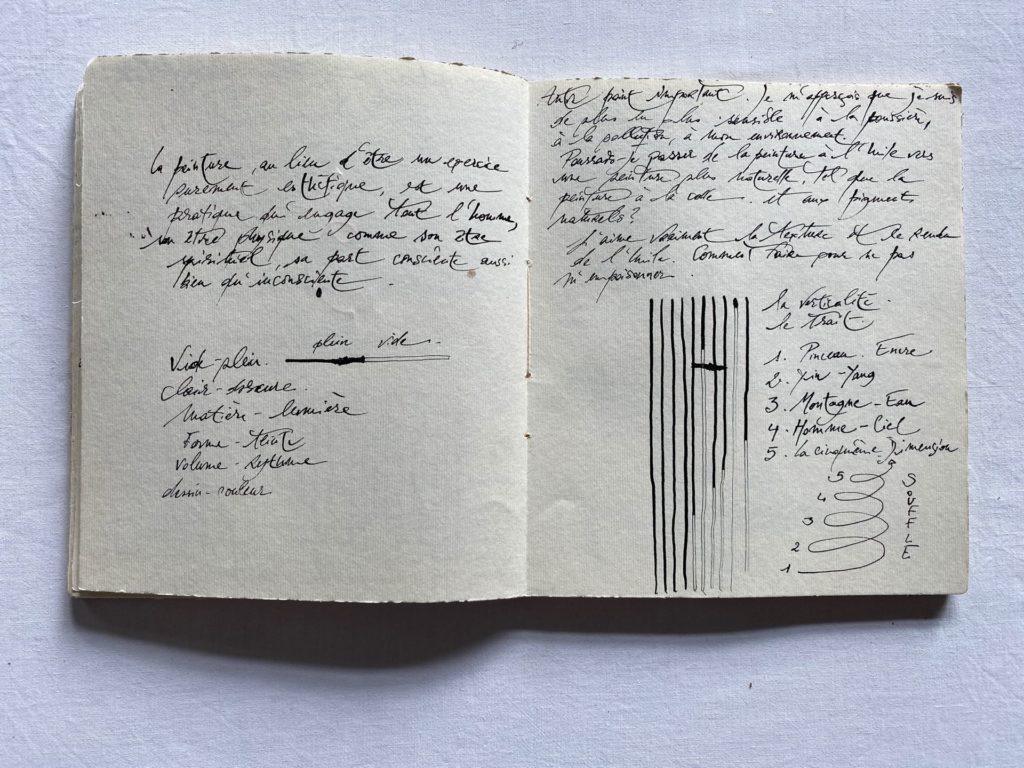 La peinture, au lieu d'être un exercice
purement esthétique, est une
pratique qui engage tout l'homme,
son être physique comme son être
spirituel, sa part consciente aussi
bien qu'inconsciente.
plein vide
Vide-plein.
Clair-obscure.
Matière-lumière
Forme-teinte
volume-rythme
dessin-couleur
Autre point important. Je m'apperçois que je suis
de plus en plus sensible à la poussière,
à la pollution, à mon environnement.
Pourrais-je passer de la peinture à l'huile vers
une peinture plus naturelle, tel que la
peinture à la colle et aux pigments
naturels?
J'aime vraiment la texture et le rendu
de l'huile. Comment faire pour ne pas
m'empoisonner.
La verticalité.
le trait.
1. Pinceau. Encre
2. Yin-Yang
3. Montagne-Eau
4. Homme-Ciel
5. La cinquième Dimension
5
4
3
2
1
SOUFFLE